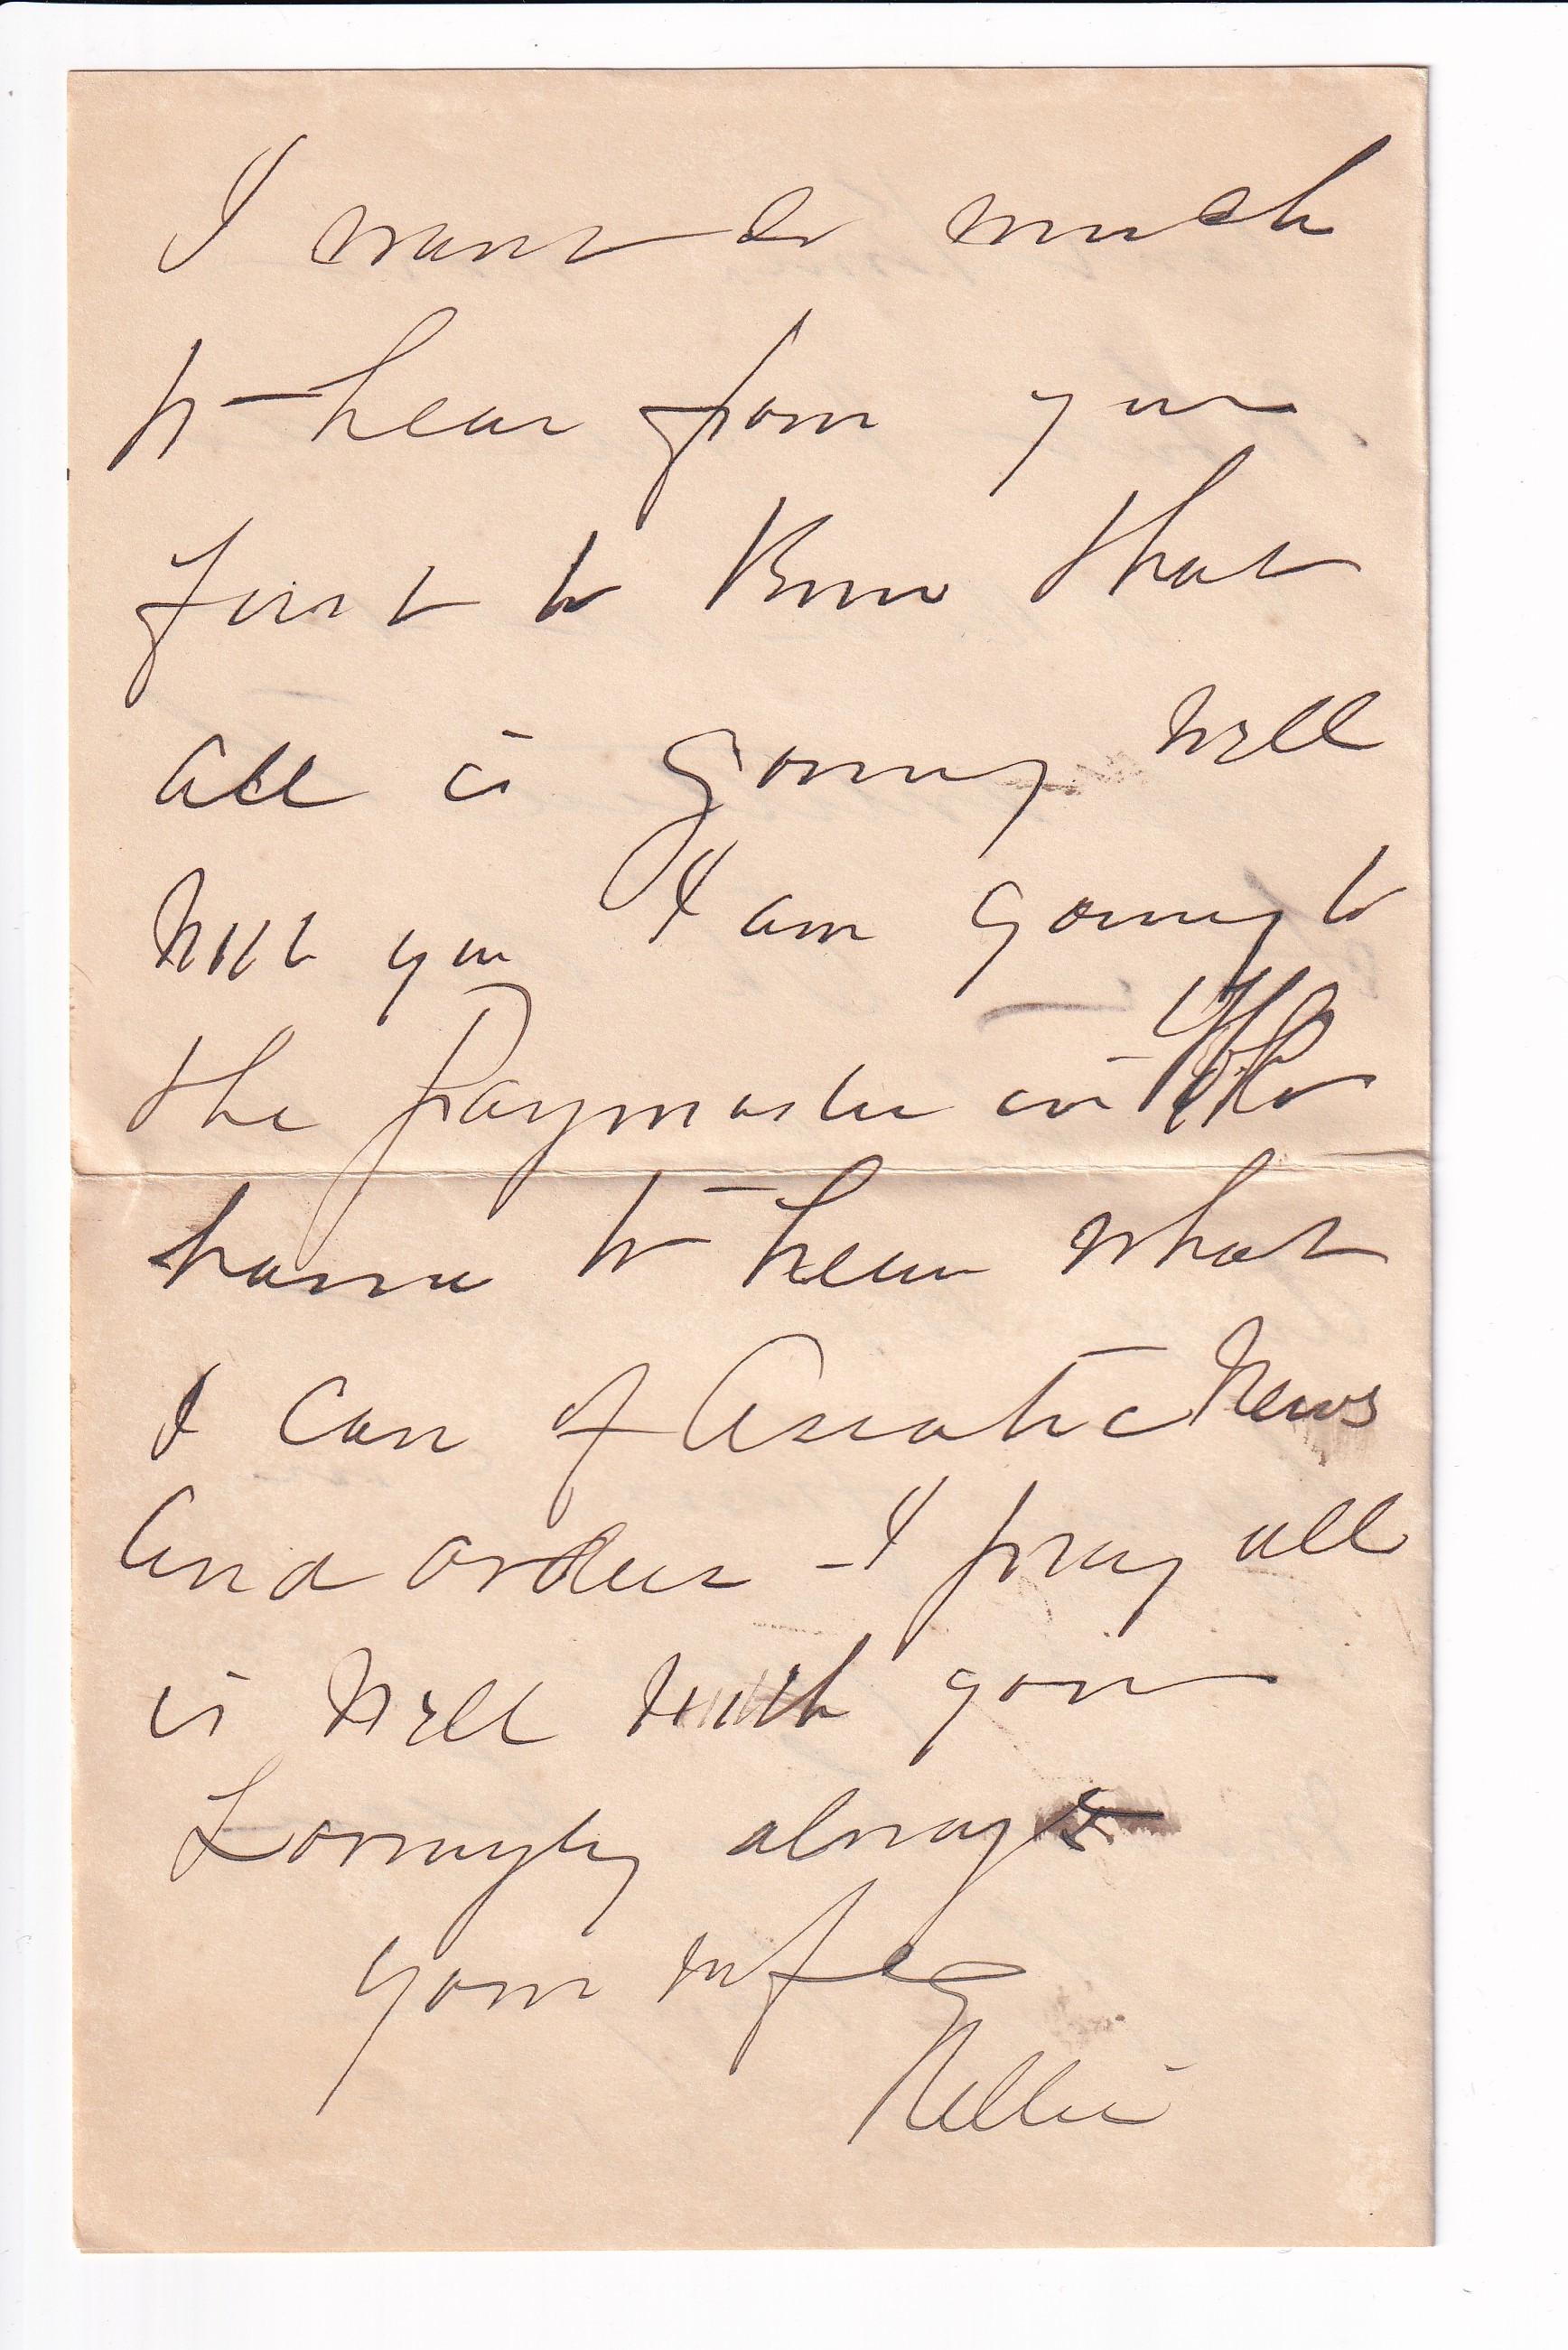 I want so much
to hear from you
first to know that
all is going well
with you I am going to
the Paymaster in Yoko
hama to hear what
I can of Asiatic News
and orders - I pray all
is well with you
Lovingly always
your wife
Nellie